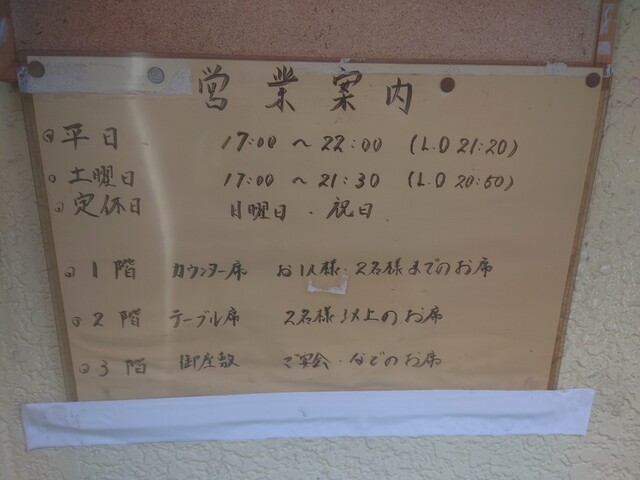 営業案内
平日 17:00 〜 22:00 (L.O 21:20)
土曜日 17:00 〜 21:30 (L.O 20:50)
定休日 日曜日・祝日
1階 カウンター席 お1人様・2名様までのお席
2階 テーブル席 2名様以上のお席
3階 御座敷 ご宴会・などのお席